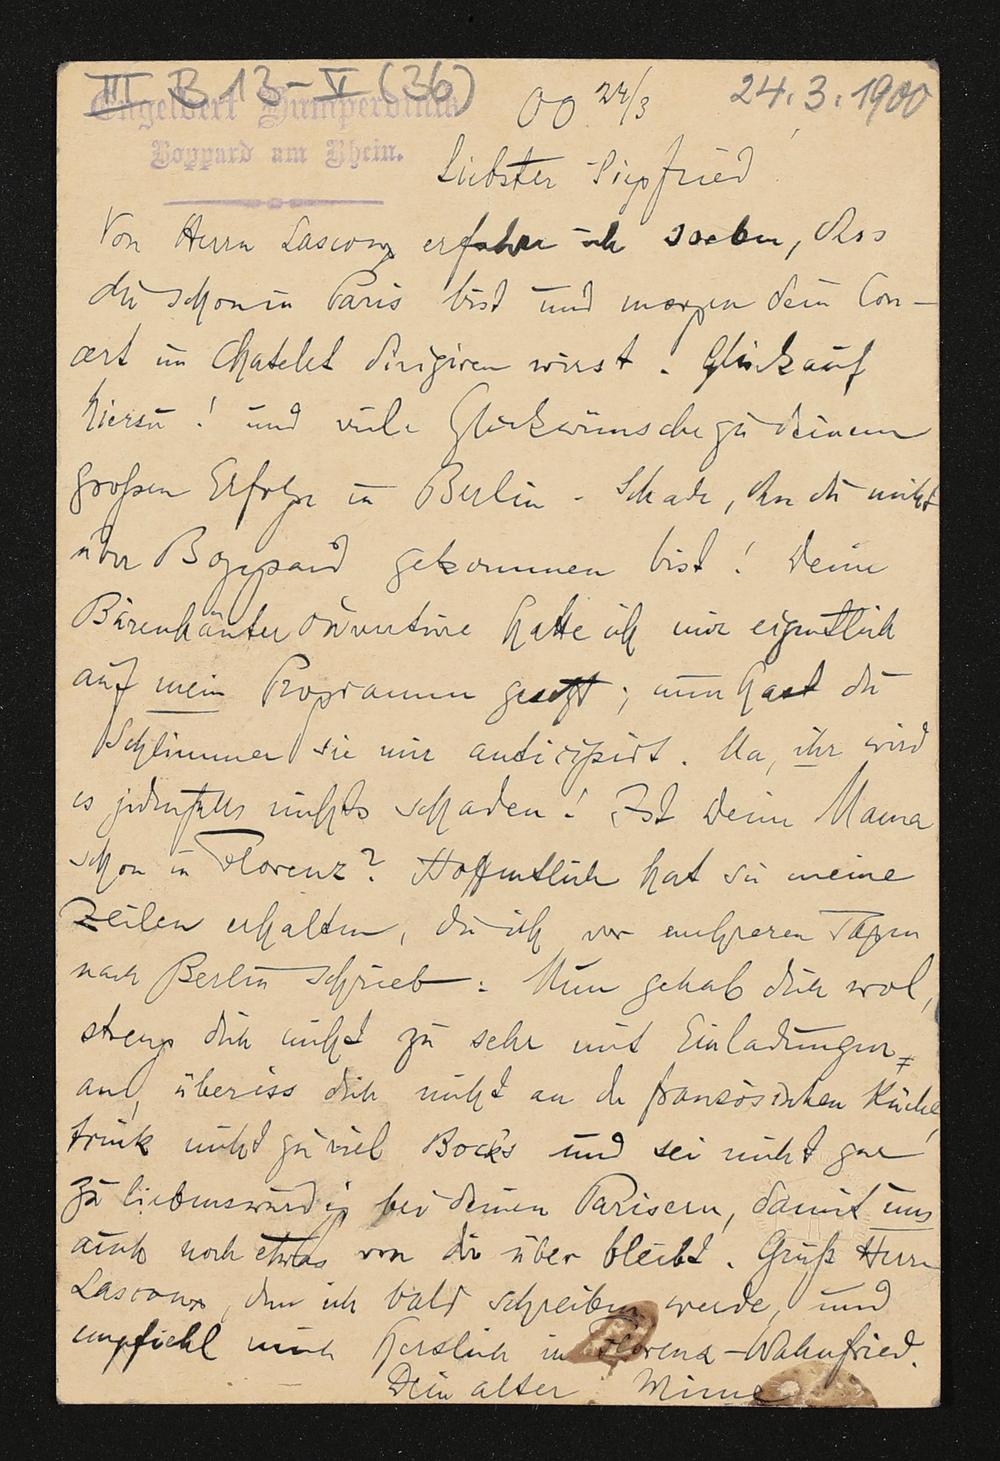 III B 13-V (36)
24.3.1900
Engelbert Humperdinck
Boppard am Rhein.
00 24/3
Liebster Siegfried!
Von Herrn Lascoux erfahre ich soeben, dass
du schon in Paris bist und morgen dein Con-
cert im Chatelet dirigiren wirst. Glückauf
hierzu! und viele Glückwünsche zu deinem
großen Erfolge in Berlin. Schade, dass du nicht
über Boppard gekommen bist! Deine
Bärenhäuter Ouvertüre hatte ich mir eigentlich
auf mein Programm gesetzt; nun hast du
Schlimmer sie mir anticipirt. Na, ihr wird
es jedenfalls nichts schaden! Ist deine Mama
schon in Florenz? Hoffentlich hat sie meine
Zeilen erhalten, die ich vor mehreren Tagen
nach Berlin schrieb. Nun gehab dich wol,
streng dich nicht zu sehr mit Einladungen
an, überiss dich nicht an der französischen Küche,
trink nicht zu viel Bocks und sei nicht gar
zu liebenswürdig bei deinen Parisern, damit uns
auch noch etwas von dir über bleibt. Grüß Herrn
Lascoux, dem ich bald schreiben werde, und
empfiehl mich herzlich in Florenz-Wahnfried.
Dein alter Mime